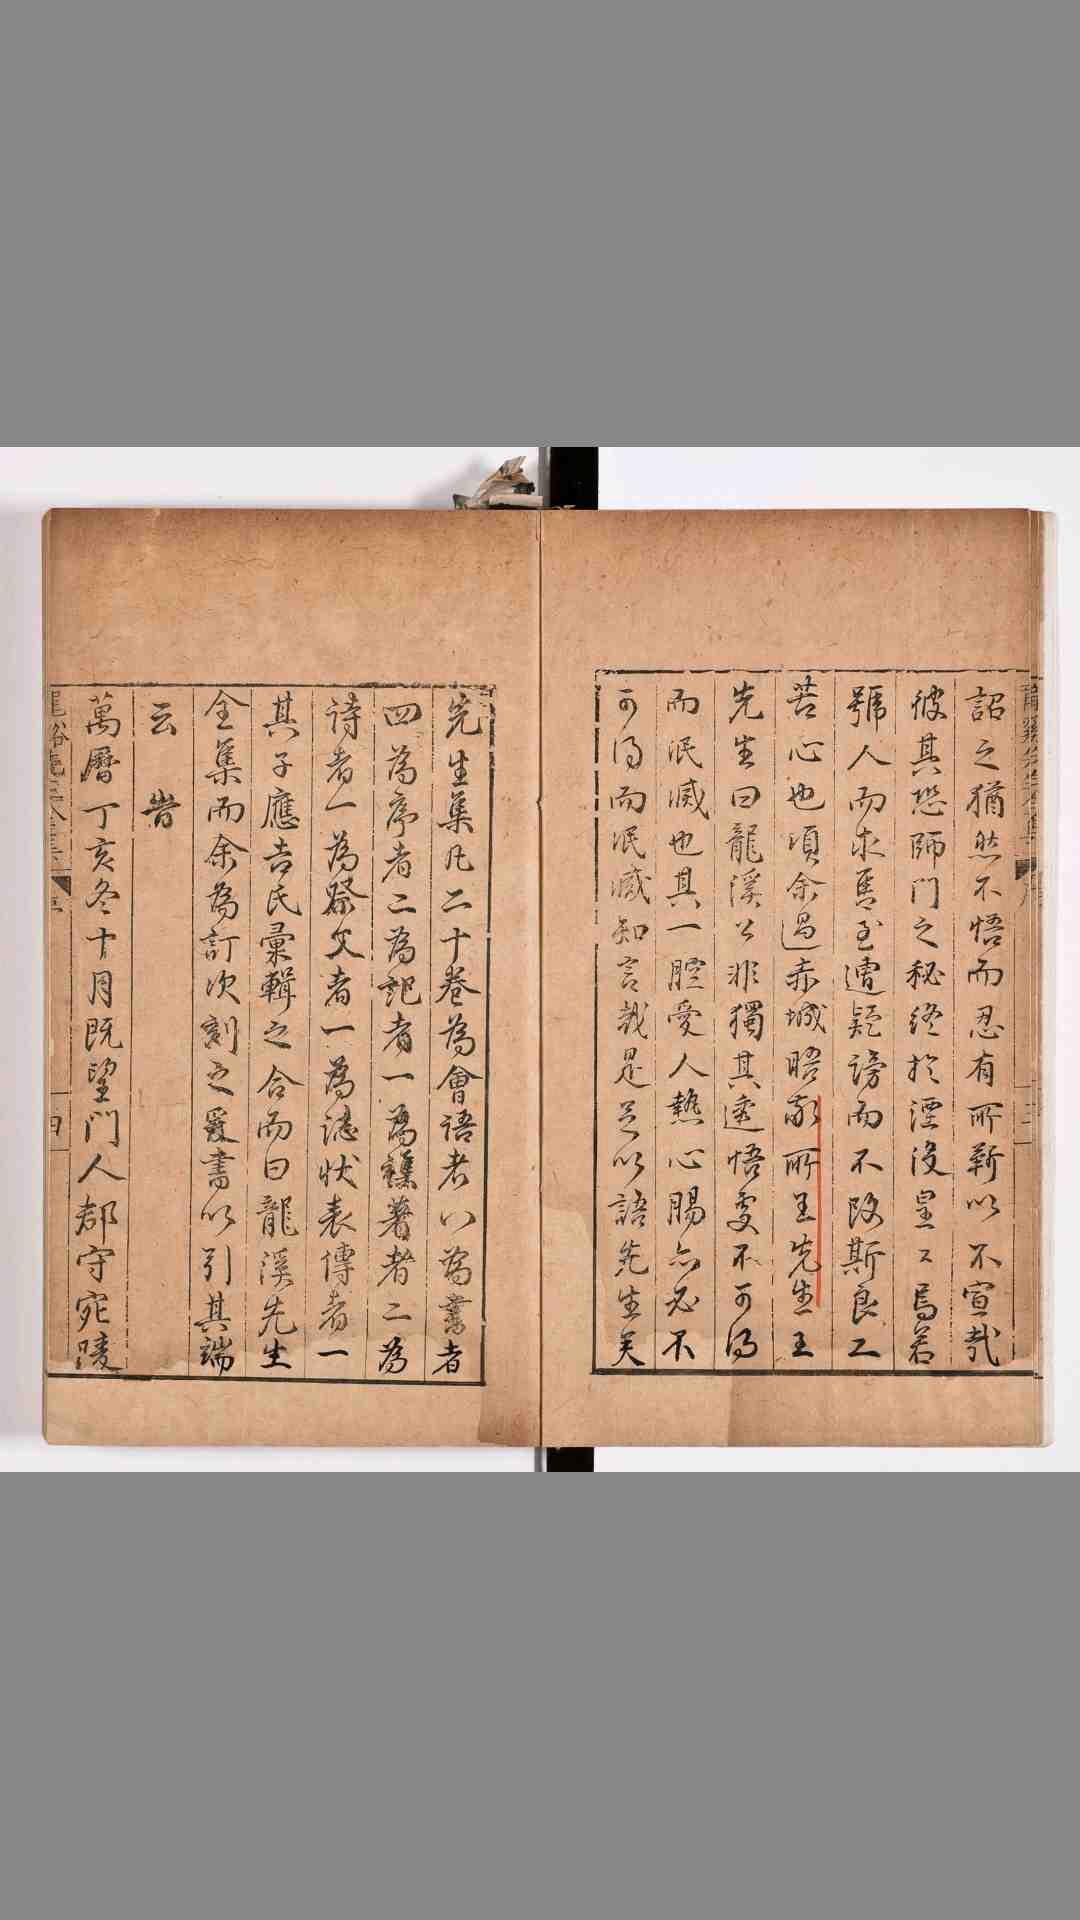 詔之猶然不悟而忍有所靳以不宣哉
彼其恐師門之秘終於湮没皇〻焉若
號人而求售至遭疑謗而不改斯良工
苦心也頃余過赤城晤敬所王先生王
先生曰龍溪公非獨其透悟處不可得
而泯滅也其一腔愛人熱心腸亦必不
可得而泯滅知言哉是足以語先生矣
先生集凡二十卷為會語者八為書者
四為序者二為記者一為雜著者二為
詩者一為祭文者一為誌狀表傳者一
其子應吉氏彙輯之合而曰龍溪先生
全集而余為訂次刻之爰書以引其端
云 昔
萬曆丁亥冬十月既望門人郡守宛陵